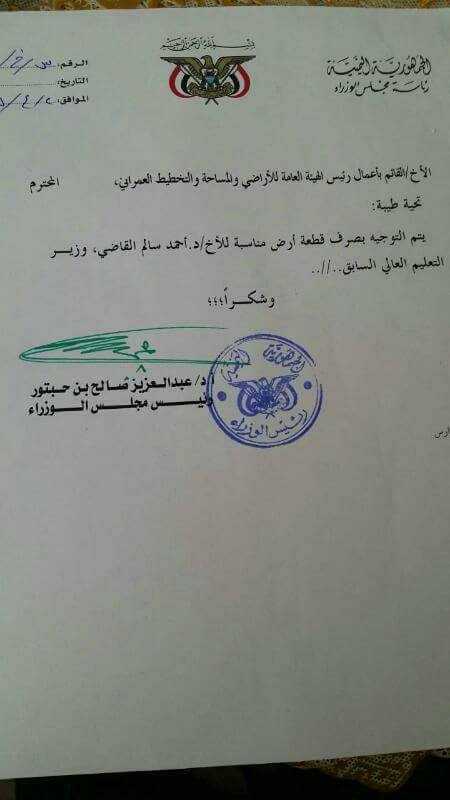 بسم الله الرحمن الرحيم
الجمهورية اليمنية
رئاسة مجلس الوزراء
الرقم:
التاريخ:
الموافق:
الأخ/القائم بأعمال رئيس الهيئة العامة للأراضي والمساحة والتخطيط العمراني، المحترم
تحية طيبة:
يتم التوجيه بصرف قطعة أرض مناسبة للأخ/د.أحمد سالم القاضي، وزير
التعليم العالي السابق..//..
وشكراً،،،
أ د/ عبدالعزيز صالح بن حبتور
رئيس مجلس الوزراء
الجمهورية اليمنية
رئيس الوزراء